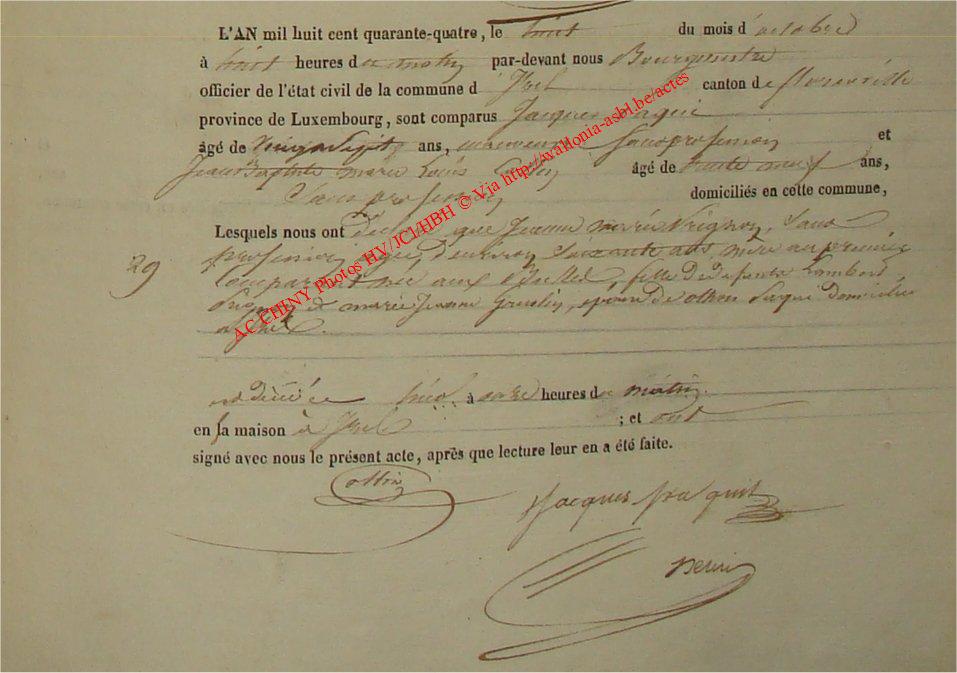 L'AN mil huit cent quarante-quatre, le huit du mois d'octobre
à huit heures du matin par-devant nous Bourgmestre
officier de l'état civil de la commune d'Izel canton de florenville
province de Luxembourg, sont comparus Jacques
âgé de ans, sans profession et
Jean Baptiste marie Louis âgé de trente neuf ans,
Sans profession domiciliés en cette commune,
Lesquels nous ont déclaré que Jeanne marie Vrignon, Sans
profession agée d'environ Soixante ans, mère au premier
Comparant née aux fille de defunts Lambert
29
Vrignon et marie Jeanne épouse de domiciliée
à Izel.
est décédée hier à onze heures du matin
en la maison à Izel ; et ont
signé avec nous le présent acte, après que lecture leur en a été faite.
ottin
Jacques
AC CHINY Photos HV/JCl/HBH © Via http://wallonia-asbl.be/actes